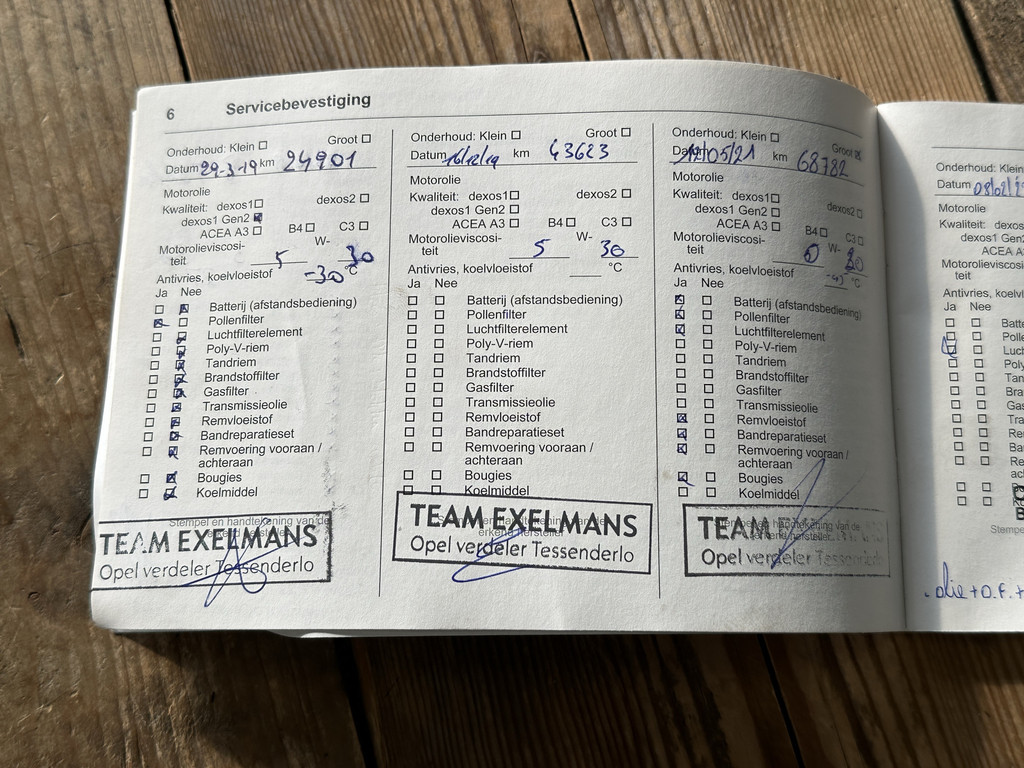 6 Servicebevestiging
Onderhoud: Klein Groot
Datum 29-3-19 km 24901
Motorolie
Kwaliteit: dexos1 dexos2
dexos1 Gen2
ACEA A3 B4 C3
Motorolieviscosi-
teit 5 W- 30
Antivries, koelvloeistof -30 °C
Ja Nee
Batterij (afstandsbediening)
Pollenfilter
Luchtfilterelement
Poly-V-riem
Tandriem
Brandstoffilter
Gasfilter
Transmissieolie
Remvloeistof
Bandreparatieset
Remvoering vooraan /
achteraan
Bougies
Koelmiddel
Stempel en handtekening van de
TEAM EXELMANS
Opel verdeler Tessenderlo
Onderhoud: Klein Groot
Datum 16/12/19 km 43623
Motorolie
Kwaliteit: dexos1 dexos2
dexos1 Gen2
ACEA A3 B4 C3
Motorolieviscosi-
teit 5 W- 30
Antivries, koelvloeistof °C
Ja Nee
Batterij (afstandsbediening)
Pollenfilter
Luchtfilterelement
Poly-V-riem
Tandriem
Brandstoffilter
Gasfilter
Transmissieolie
Remvloeistof
Bandreparatieset
Remvoering vooraan /
achteraan
Bougies
Koelmiddel
TEAM EXELMANS
Opel verdeler Tessenderlo
Onderhoud: Klein Groot
Datum /05/21 km 68782
Motorolie
Kwaliteit: dexos1 dexos2
dexos1 Gen2
ACEA A3 B4 C3
Motorolieviscosi-
teit 0 W-
Antivries, koelvloeistof °C
Ja Nee
Batterij (afstandsbediening)
Pollenfilter
Luchtfilterelement
Poly-V-riem
Tandriem
Brandstoffilter
Gasfilter
Transmissieolie
Remvloeistof
Bandreparatieset
Remvoering vooraan /
achteraan
Bougies
Koelmiddel
Stempel en handtekening van de
TEAM
Opel verdeler Tessenderlo
Onderhoud: Klein
Datum
Motorolie
Kwaliteit: dexos
dexos1 G
ACEA
Motorolievisco
teit
Antivries, koelvl
Ja Nee
Batte
Polle
Luch
Poly
Tan
Bra
Gas
Tra
Re
Ba
Re
ac
Stempe
olie + O.F. +